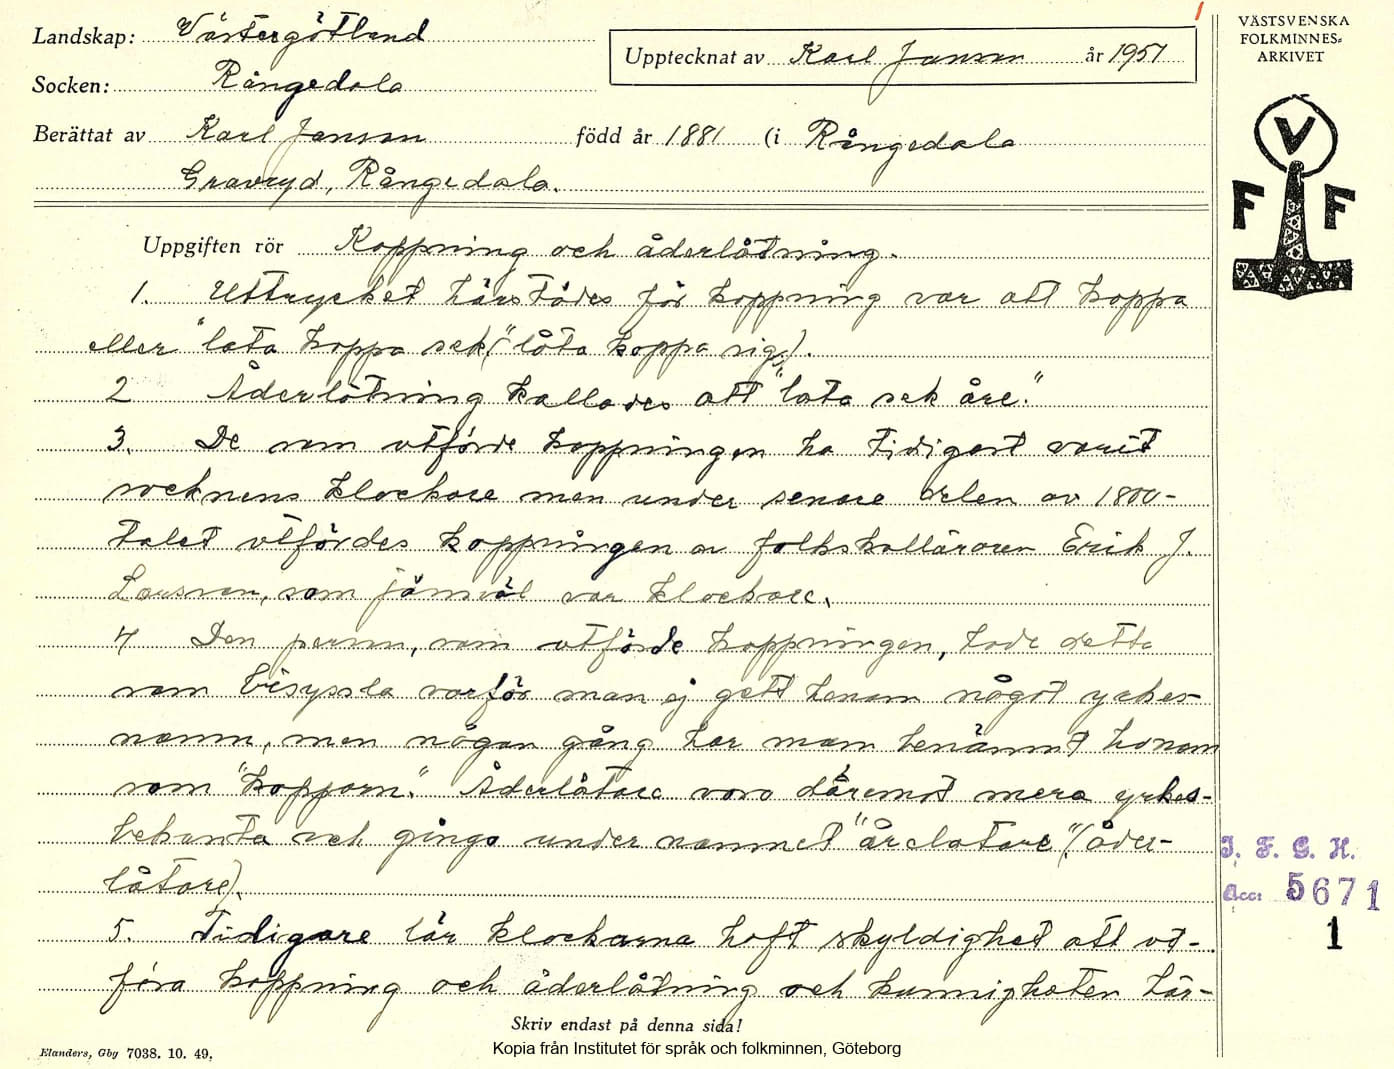 1
Landskap: Västergötland
Upptecknat av Karl Janson år 1951
Socken: Rångedala
Berättat av Karl Janson född år 1881 (i Rångedala
Gravryd, Rångedala.
Uppgiften rör Koppning och åderlåtning.
1. Uttrycket härstädes för koppning var att koppa
eller "lata koppa sek" (låta koppa sig).
2 Åderlåtning kallades att "lata sek åre."
3. De som utförde koppningen ha tidigast varit
socknens klockare men under senare delen av 1800-
talet utfördes koppningen av folkskolläraren Erik J.
Larsson, som jämväl var klockare.
4 Den person, som utförde koppningen, hade detta
som bisyssla varför man ej gett honom något yrkes-
namn, men någon gång har man benämnt honom
som "kopparn." Åderlåtare voro däremot mera yrkes-
bekanta och gingo under namnet "årelatare" (åder-
låtare).
5. Tidigare lär klockarna haft skyldighet att ut-
föra koppning och åderlåtning och kunnigheten här-
Skriv endast på denna sida!
Elanders, Gbg 7038. 10. 49.
Kopia från Institutet för språk och folkminnen, Göteborg
VÄSTSVENSKA
FOLKMINNES-
ARKIVET
V
F F
I. F. G. H.
Acc: 5671
1